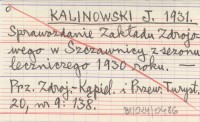 KALINOWSKI J. 1931.
Sprawozdanie Zakładu Zdrojo-
wego w Szczawnicy z sezonu
leczniczego 1930 roku. —
Prz. Zdroj.-Kąpiel. i Przew. Turyst.
20, nr 9: 138.